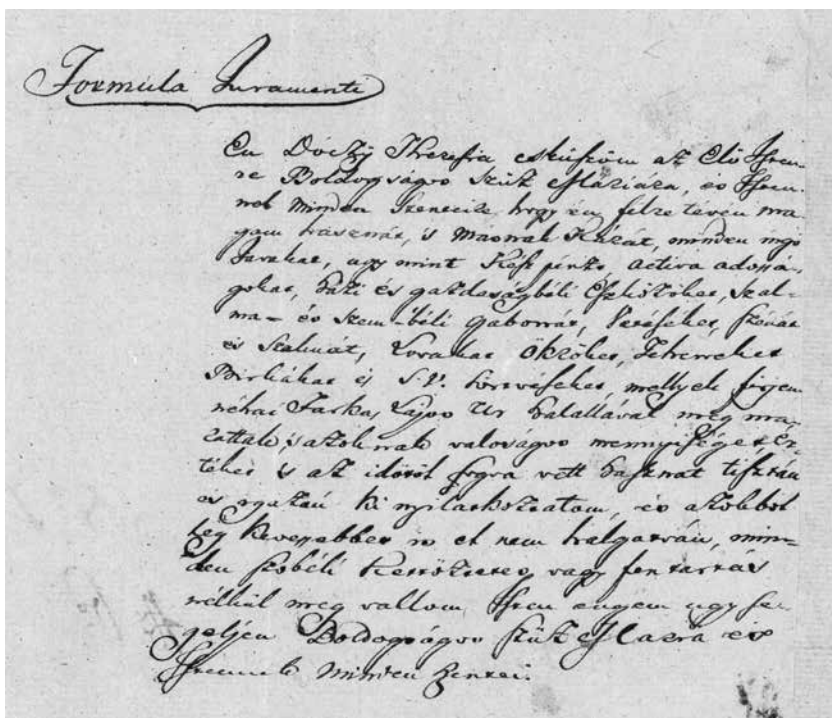 Formula Juramenti
En Dóczÿ Theresia esküszöm az Elö Isten-
re Boldogságos Szüz Máriára, és Isten-
nek minden Szenteire, hogy én félre tévén ma-
gam hasznát, is másnak Kárát, minden ingó
Javakat, ugy mint Kész pénzt, activa adossá-
gokat, házi és gazdaságbéli Eszközöket, szal-
ma- és szem-béli gabonát, szénát
és szalmát, Lovakat Ökröket, Teheneket
Birkákat és S.V. sertvéseket, mellyek férjem
néhai Farkas Lajos Ur halállával meg ma-
rattak, s azoknak valoságos mennyiséget, ér-
téket is az idötöl fogva vett hasznát tisztán
és igazán ki nyilatkoztatom, és azokbol
leg kevessebbet is el nem halgatván, min-
den szóbéli vagy fentartás
nélkül meg vallom, Isten engem ugy se-
géljen Boldogságos Szüz Maria és
Istennek minden Szentei.